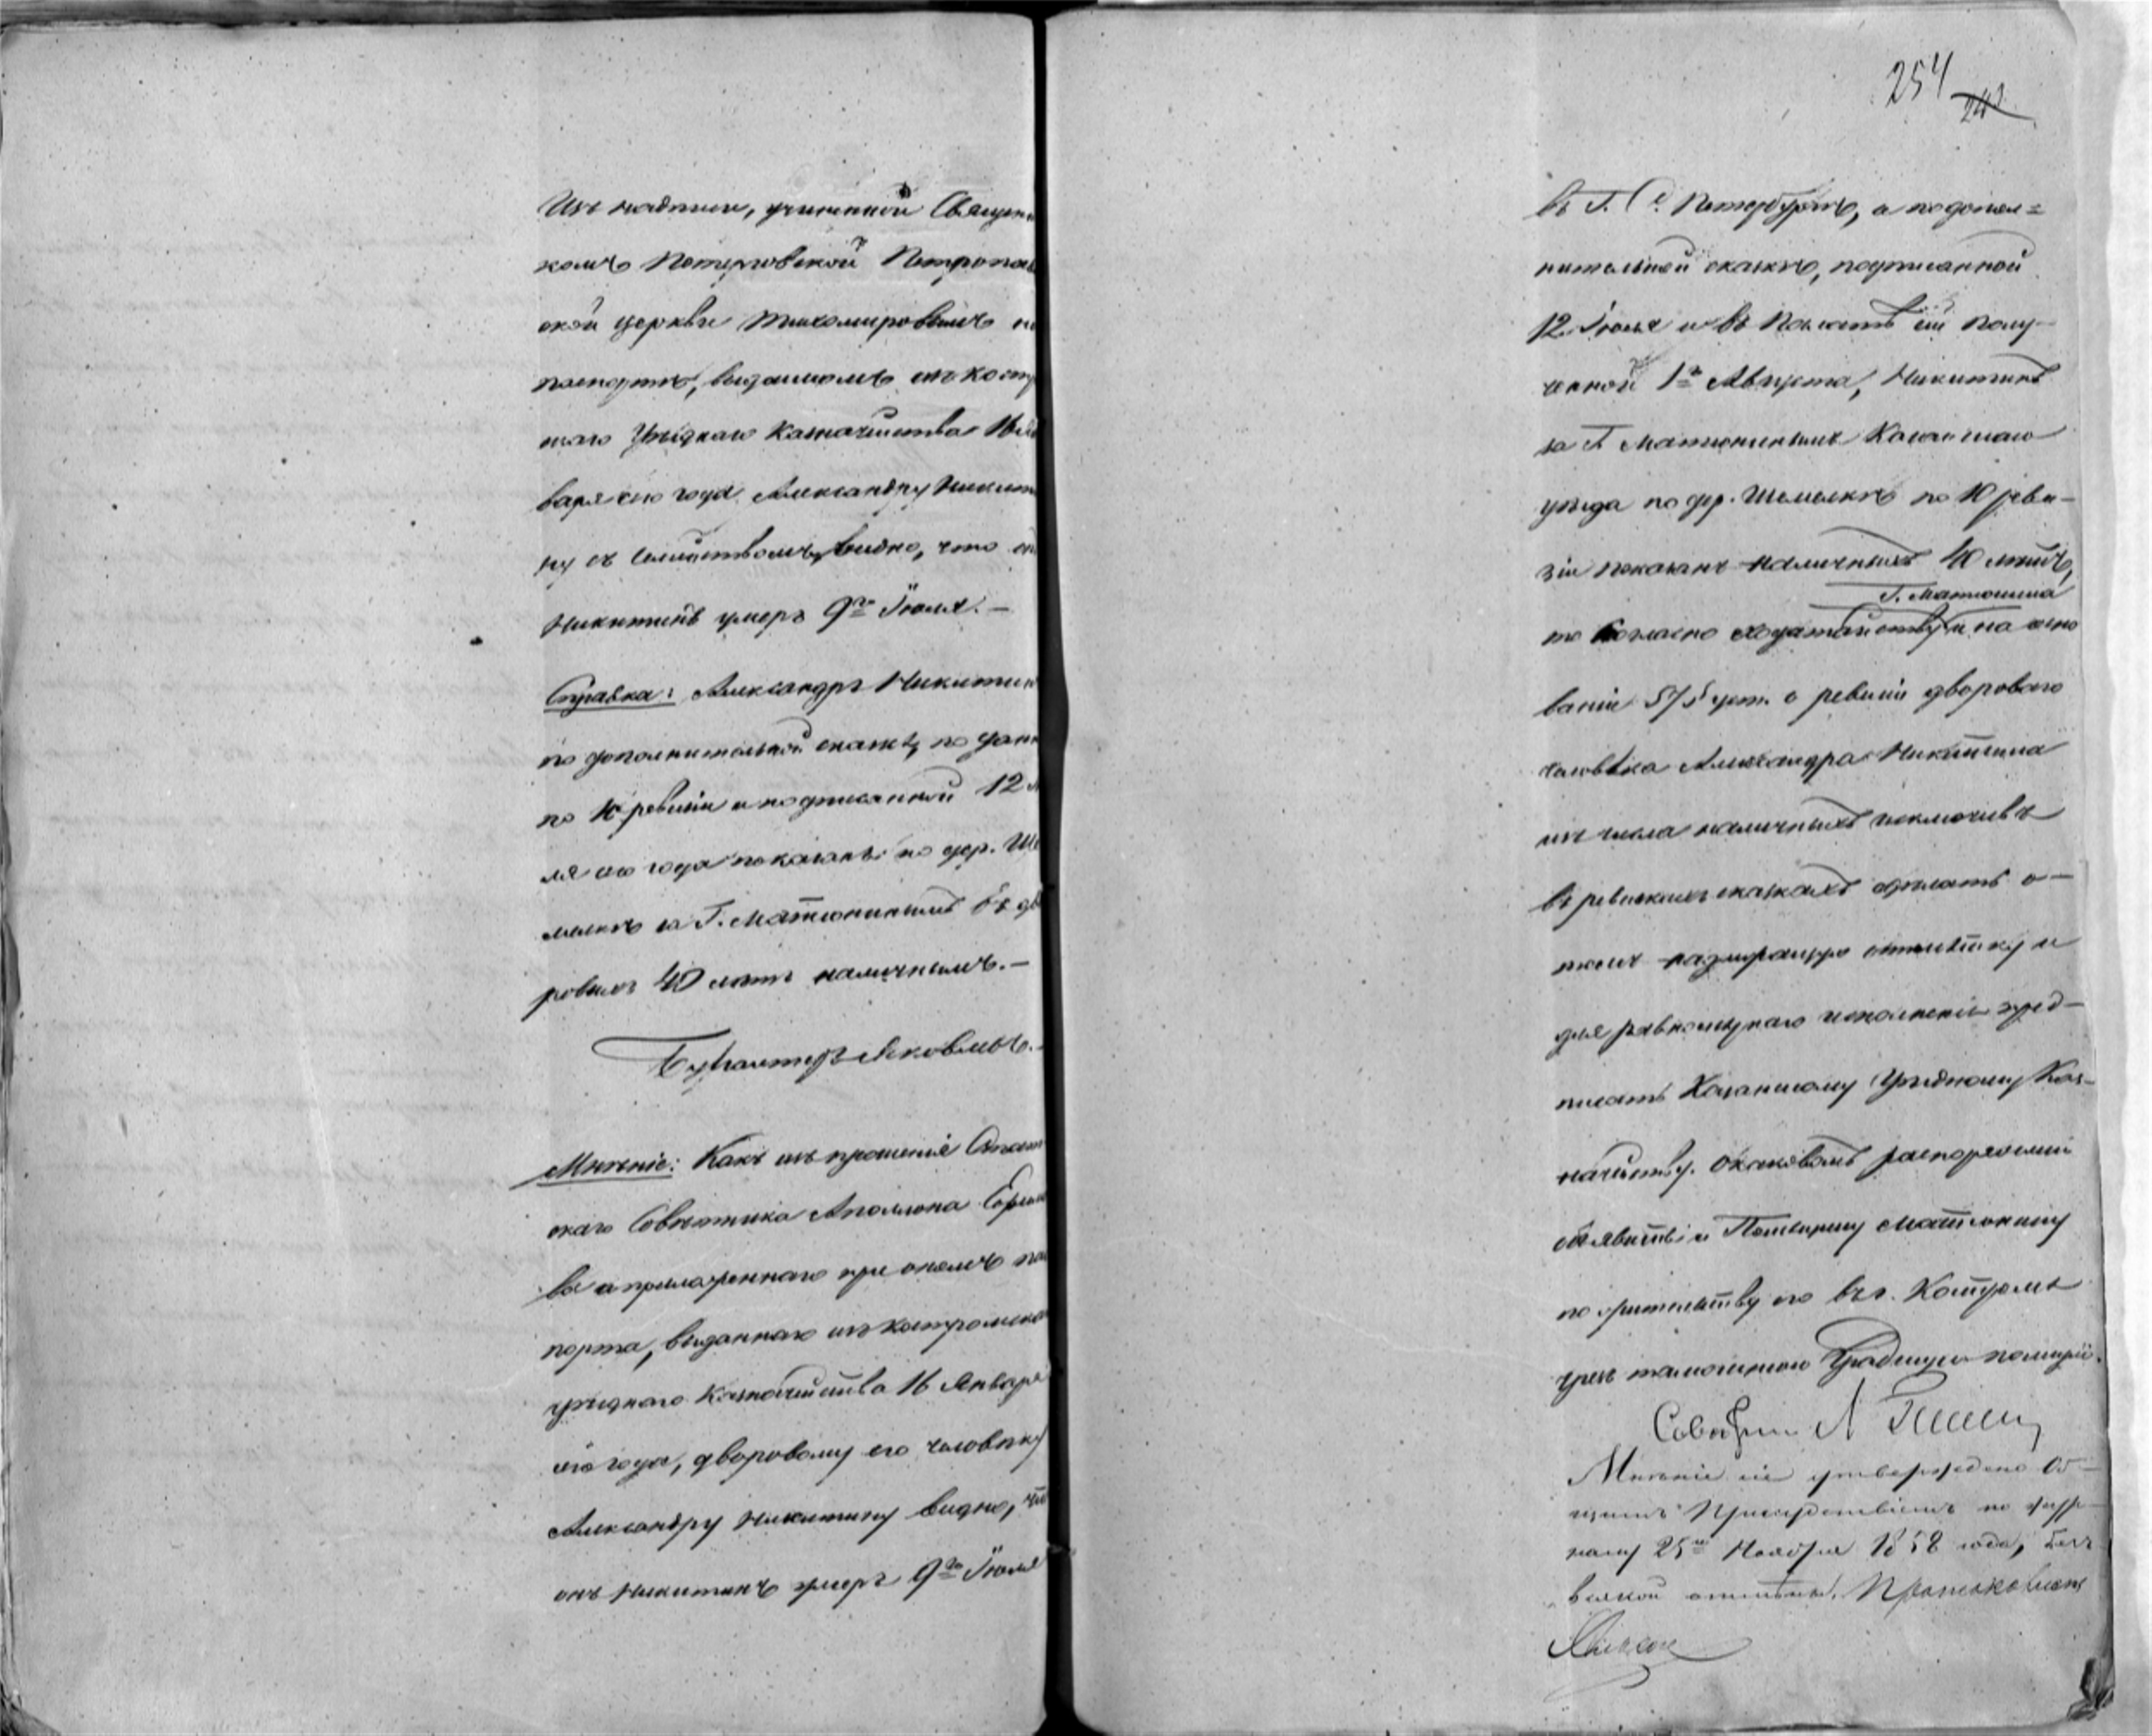 Изъ надписи, учиненной Священ
комъ Петерговской Петропав
ской церкви Тихомировымъ на
паспортѣ, выданномъ изъ Кост
скаго Уѣзднаго Казначейства 16 Ян
варя сего года Александру Никити
ну съ семействомъ, видно, что онъ
Никитинъ умеръ 9го Іюля.—
Справка: Александръ Никитин
по дополнительной сказкѣ, подан
по 10 ревизіи и подписанной 12 І
ля сего года показанъ по дер. Ше
мелкѣ за Г. Матюнинымъ въ дв
ровыхъ 40 лѣтъ наличнымъ.—
Бухгалтеръ Яковлевъ.—
Мнѣніе: Какъ изъ прошенія Статс
скаго Совѣтника Аполлона
ва и приложеннаго при ономъ пас
порта, выданнаго изъ Костромска
уѣзднаго Казначейства 16 Января
сего года, дворовому его человѣку
Александру Никитину видно, что
онъ Никитинъ умеръ 9го Іюля
254
242
въ Г. С. Петербургѣ, а по допол=
нительной сказкѣ, подписанной
12 Іюля и въ Палатѣ сей полу-
ченной 1го Августа, Никитинъ
за Г. Матюнинымъ Казанскаго
уѣзда по дер. Шемелкѣ по 10 реви-
зіи показанъ наличнымъ 40 лѣтъ,
Г. Матюнина
то согласно ходатайству и на осно
ваніи 575 уст. о ревизіи двороваго
человѣка Александра Никитина
изъ числа наличныхъ исключивъ
въ ревизскихъ сказкахъ сдѣлать о-
томъ надлежащую отмѣтку и
для равномѣрнаго исполненія пред-
писать Казанскому Уѣздному Каз-
начейству. О каковомъ распоряженіи
объявить и Помѣщику Матюнину
по жительству его въ г. Костромѣ
чрезъ тамошнюю Градскую полицію.
Совѣтник А
Мнѣніе сіе утверждено Об-
щимъ Присутствіемъ по жур-
налу 25го Ноября 1858 года, безъ
всякой отмѣны. Протоколистъ